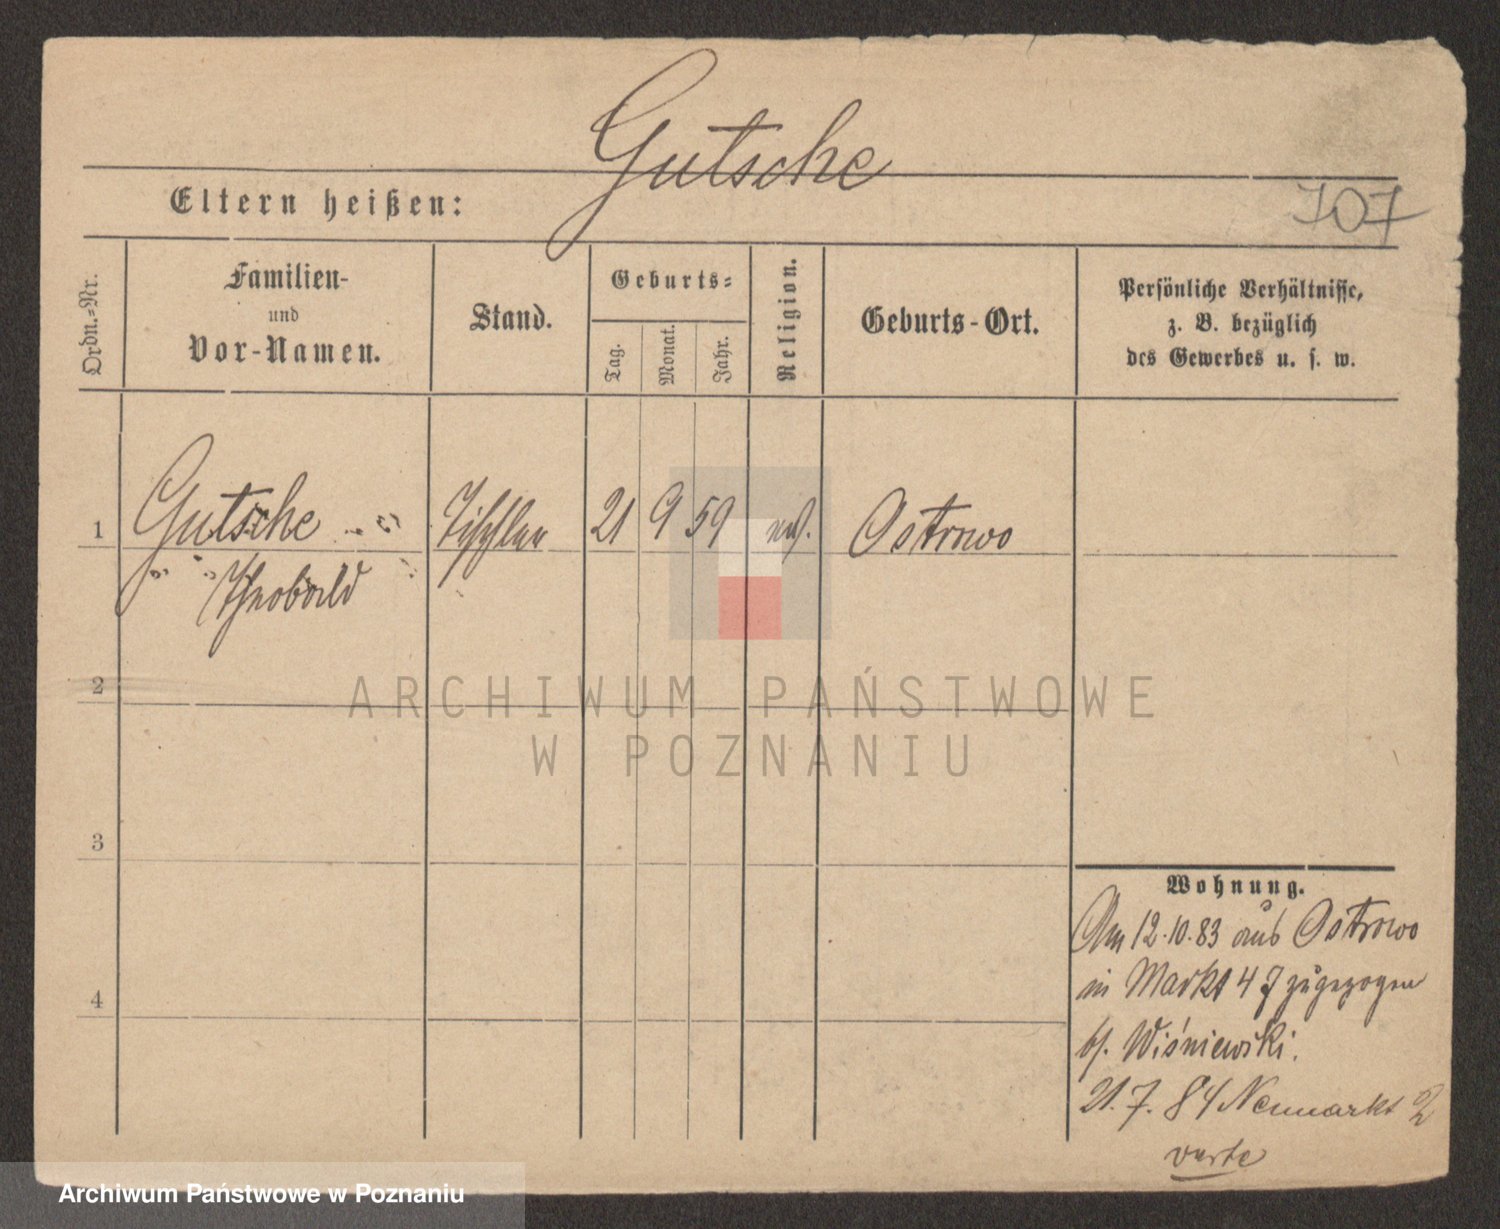 Gutsche
Eltern heißen:
707
Ordn.=Nr.
Familien-
und
Vor-Namen.
Stand.
Geburts=
Tag.
Monat.
Jahr.
Religion.
Geburts-Ort.
Persönliche Verhältnisse,
z. B. bezüglich
des Gewerbes u. s. w.
1 Gutsche Tischler 21 9 59 Ostrowo
Theobald
2
ARCHIWUM PAŃSTWOWE
W POZNANIU
3
4
Wohnung.
Am 12.10.83 aus Ostrowo
in Markt 4 zugezogen
b/. Wiśniewski.
21.7.84 Neumarkt 2
verte
Archiwum Państwowe w Poznaniu